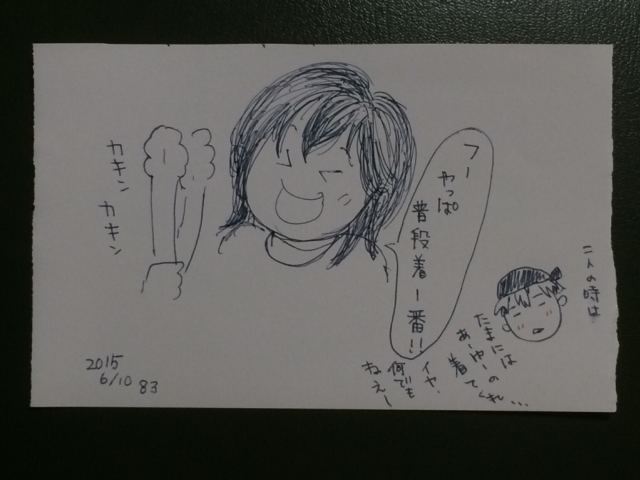 二人の時は
たまには
あーゆーの
着てくれ...
イヤ、
何でも
ねぇー
フー
やっぱ
普段着一番!!
カキン
カキン
2015
6/10 83